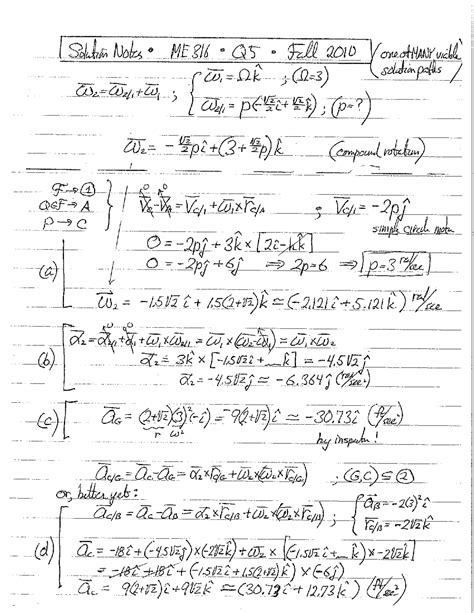 Solution Notes • ME 316 • Q5 • Fall 2010 (one of MANY viable solution paths)
ω̄₂ = ω̄₂/₁ + ω̄₁ ; { ω̄₁ = Ωk̂ ; (Ω=3)
ω̄₂/₁ = p(-√2/2 î + √2/2 k̂) ; (p=?)
ω̄₂ = -√2/2 p î + (3 + √2/2 p) k̂ (compound rotation)
F → ①
Q∈F → A
P → C
V̄_Q - V̄_A = V̄_C/1 + ω̄₁ × r̄_C/A ; V̄_C/1 = -2pĵ
simple circle motn
0 = -2pĵ + 3k̂ × [2î - k̂]
(a) 0 = -2pĵ + 6ĵ ⇒ 2p = 6 ⇒ p = 3 rad/sec
ω̄₂ = -1.5√2 î + 1.5(2+√2) k̂ ≃ (-2.121 î + 5.121 k̂) rad/sec
ᾱ₂ = ᾱ₂/₁ + ᾱ₁ + ω̄₁ × ω̄₂/₁ = ω̄₁ × (ω̄₂ - ω̄₁) = ω̄₁ × ω̄₂
(b) ᾱ₂ = 3k̂ × [-1.5√2 î + __ k̂] = -4.5√2 ĵ
ᾱ₂ = -4.5√2 ĵ ≃ -6.364 ĵ (rad/sec²)
(c) ā_G = (2+√2)(3)²(-î) = -9(2+√2) î ≃ -30.73 î (ft/sec²)
r ω²
by inspection!
ā_C/G = ā_C - ā_G = ᾱ₂ × r̄_C/G + ω̄₂ × (ω̄₂ × r̄_C/G) ; (G,C) ⊆ ②
or, better yet:
ā_C/B = ā_C - ā_B = ᾱ₂ × r̄_C/B + ω̄₂ × (ω̄₂ × r̄_C/B) ; { ā_B = -2(3)² î
r̄_C/B = -2√2 k̂
(d) ā_C = -18î + (-4.5√2 ĵ) × (-2√2 k̂) + ω̄₂ × [(-1.5√2 î + __ k̂) × -2√2 k̂]
= -18î + 18î + (-1.5√2 î + 1.5(2+√2) k̂) × (-6ĵ)
ā_C = 9(2+√2) î + 9√2 k̂ ≃ (30.73 î + 12.73 k̂) (ft/sec²)